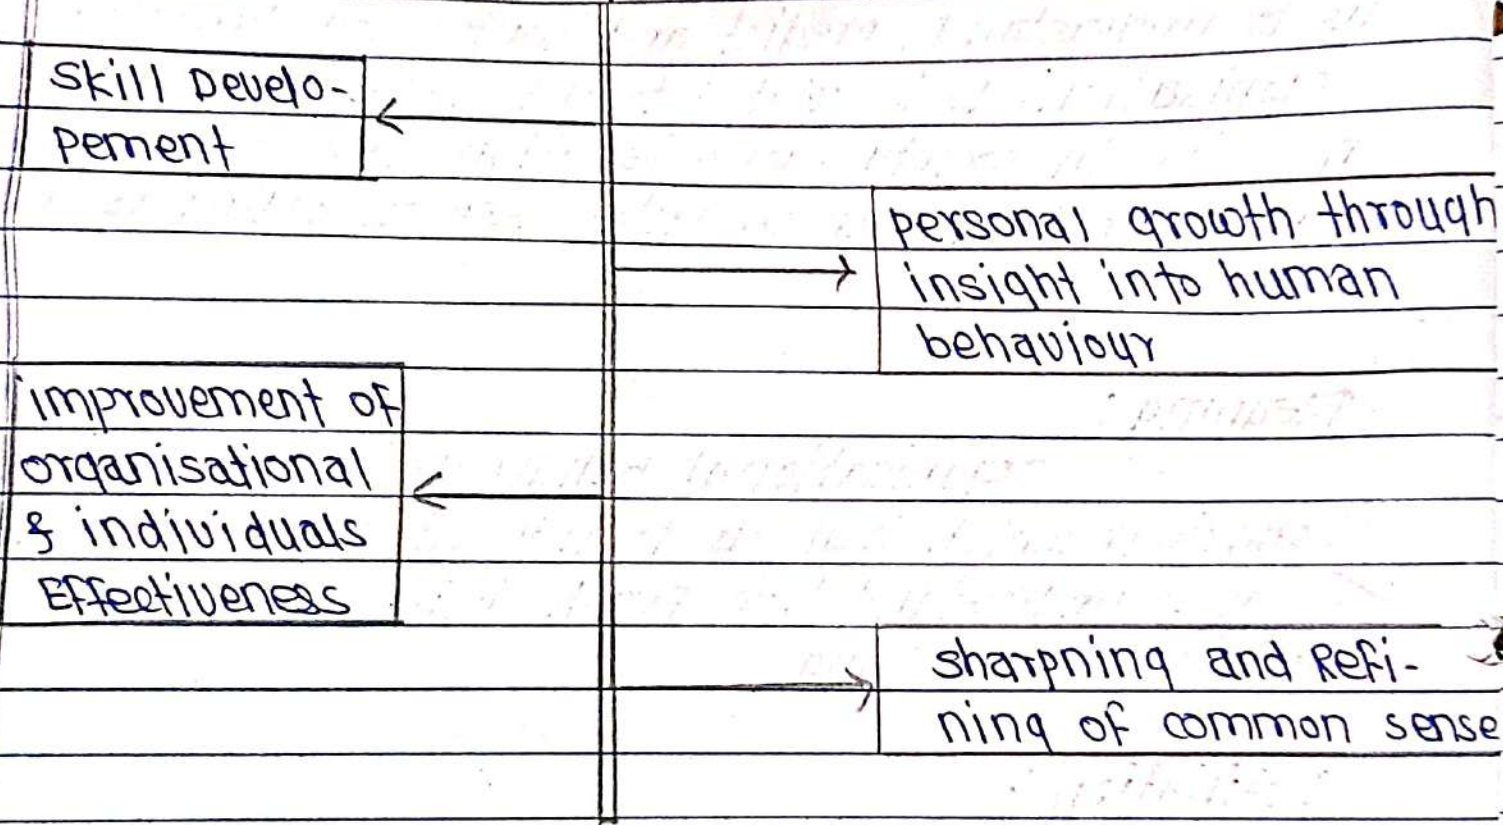 Skill Develo-
Pement
personal growth through
insight into human
behaviour
improvement of
organisational
& individuals
Effectiveness
sharpning and Refi-
ning of common sense